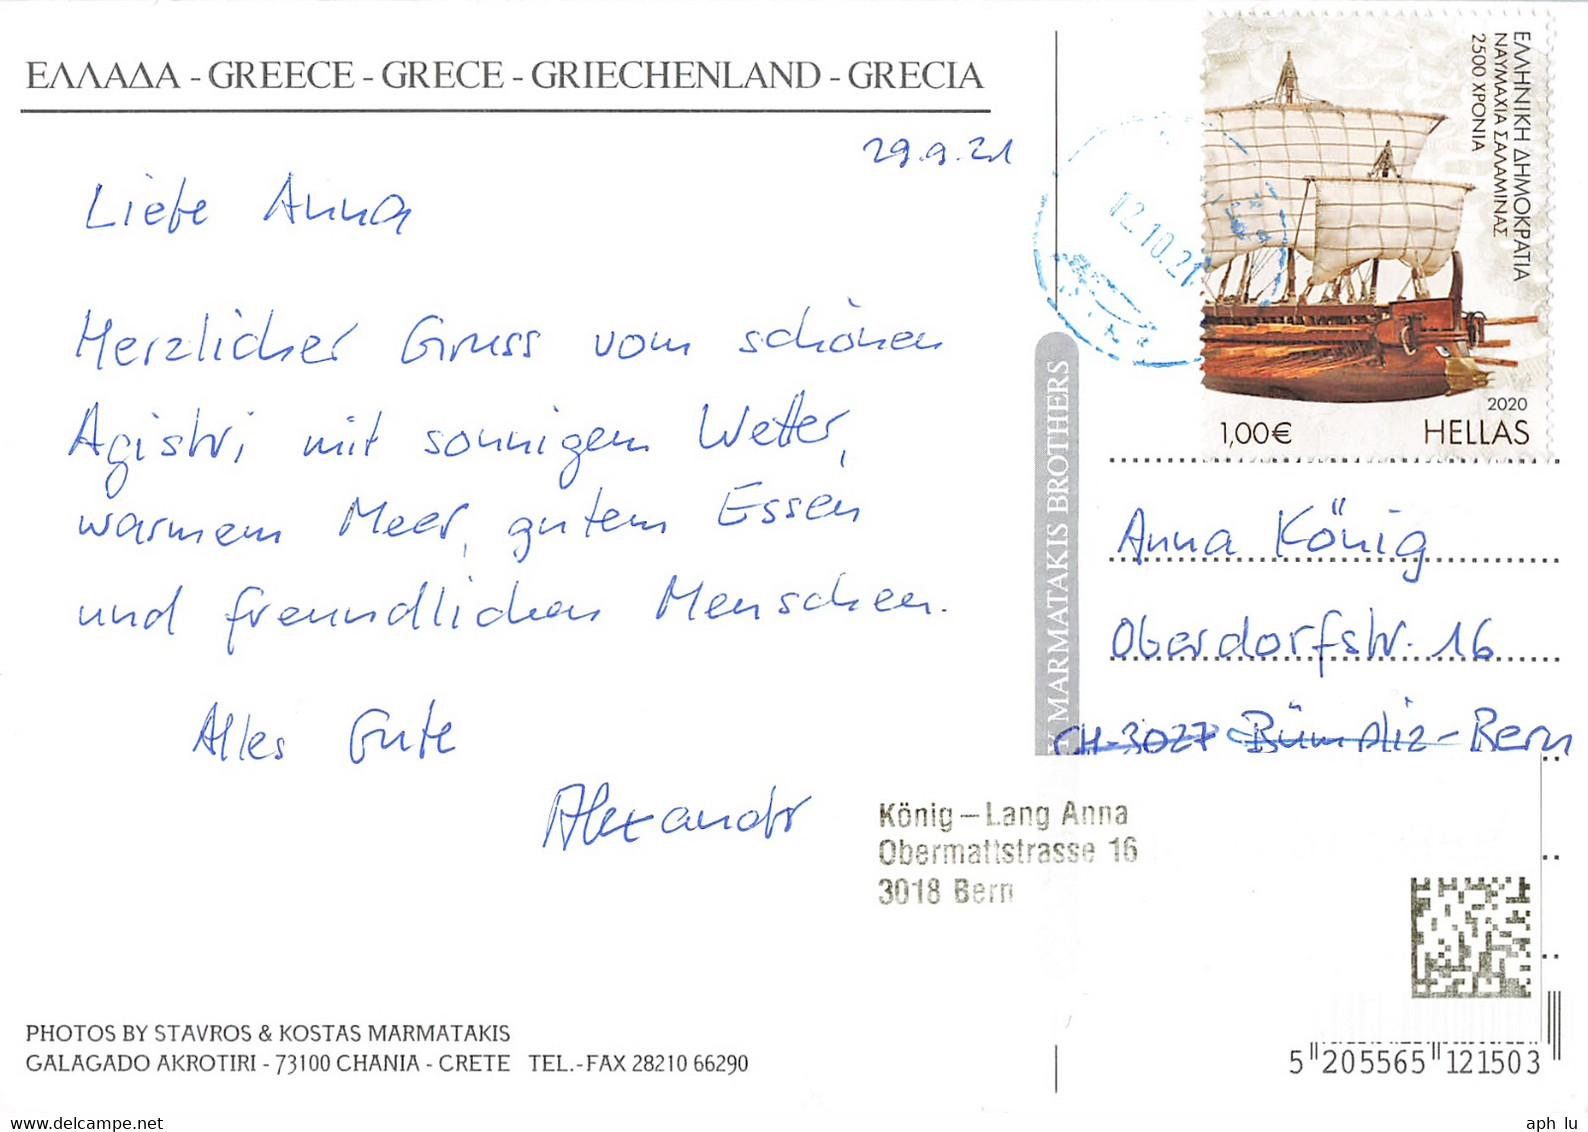 ΕΛΛΑΔΑ - GREECE - GRECE - GRIECHENLAND - GRECIA
29.9.21
Liebe Anna
Herzlicher Gruss vom schönen
Agistri mit sonnigem Wetter,
warmem Meer, gutem Essen
und freundlichen Menschen.
Alles Gute
Alexandr
PHOTOS BY STAVROS & KOSTAS MARMATAKIS
GALAGADO AKROTIRI - 73100 CHANIA - CRETE TEL.-FAX 28210 66290
MARMATAKIS BROTHERS
12.10.21
ΕΛΛΗΝΙΚΗ ΔΗΜΟΚΡΑΤΙΑ
ΝΑΥΜΑΧΙΑ ΣΑΛΑΜΙΝΑΣ
2500 ΧΡΟΝΙΑ
2020
1,00€ HELLAS
Anna König
Oberdorfstr. 16
CH-3027 Bümpliz-Bern
König-Lang Anna
Obermattstrasse 16
3018 Bern
5 205565 121503
aph lu